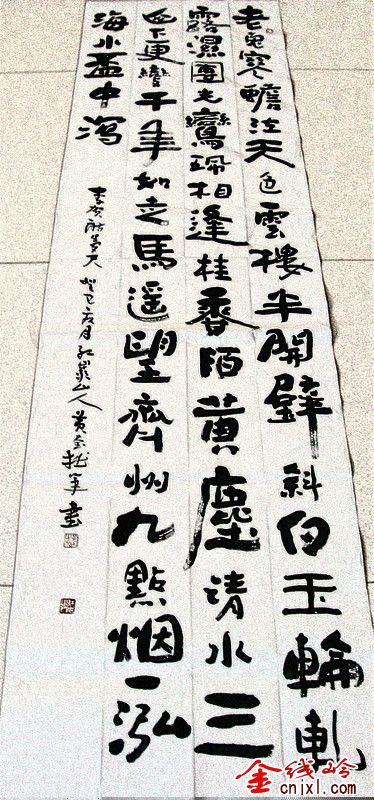 老兔寒蟾泣天色雲樓半開壁斜白玉輪軋
露濕團光鸞珮相逢桂香陌黄塵清水三
山下更變千年如走馬遥望齊州九點烟一泓
海水盃中瀉
李賀詩夢天 癸巳月山人黄金
金线岭
cnjxl.com